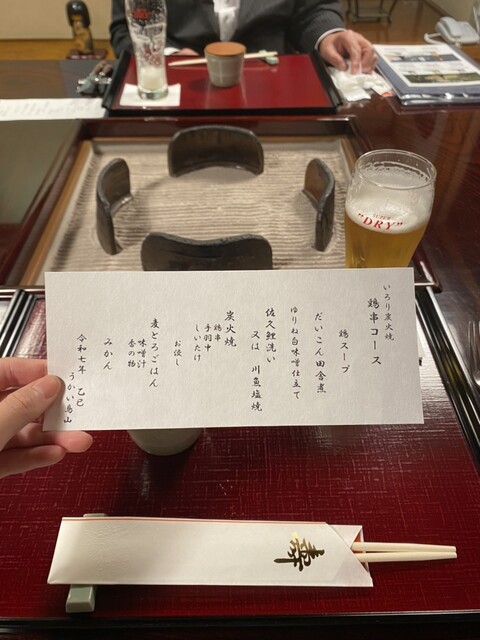 いろり炭火焼
鶏串コース
鶏スープ
だいこん田舎煮
ゆりね白味噌仕立て
佐久鯉洗い
又は 川魚塩焼
炭火焼
鶏串
手羽中
しいたけ
お浸し
麦とろごはん
味噌汁
香の物
みかん
令和七年 乙巳
うかい鳥山
"DRY"
寿